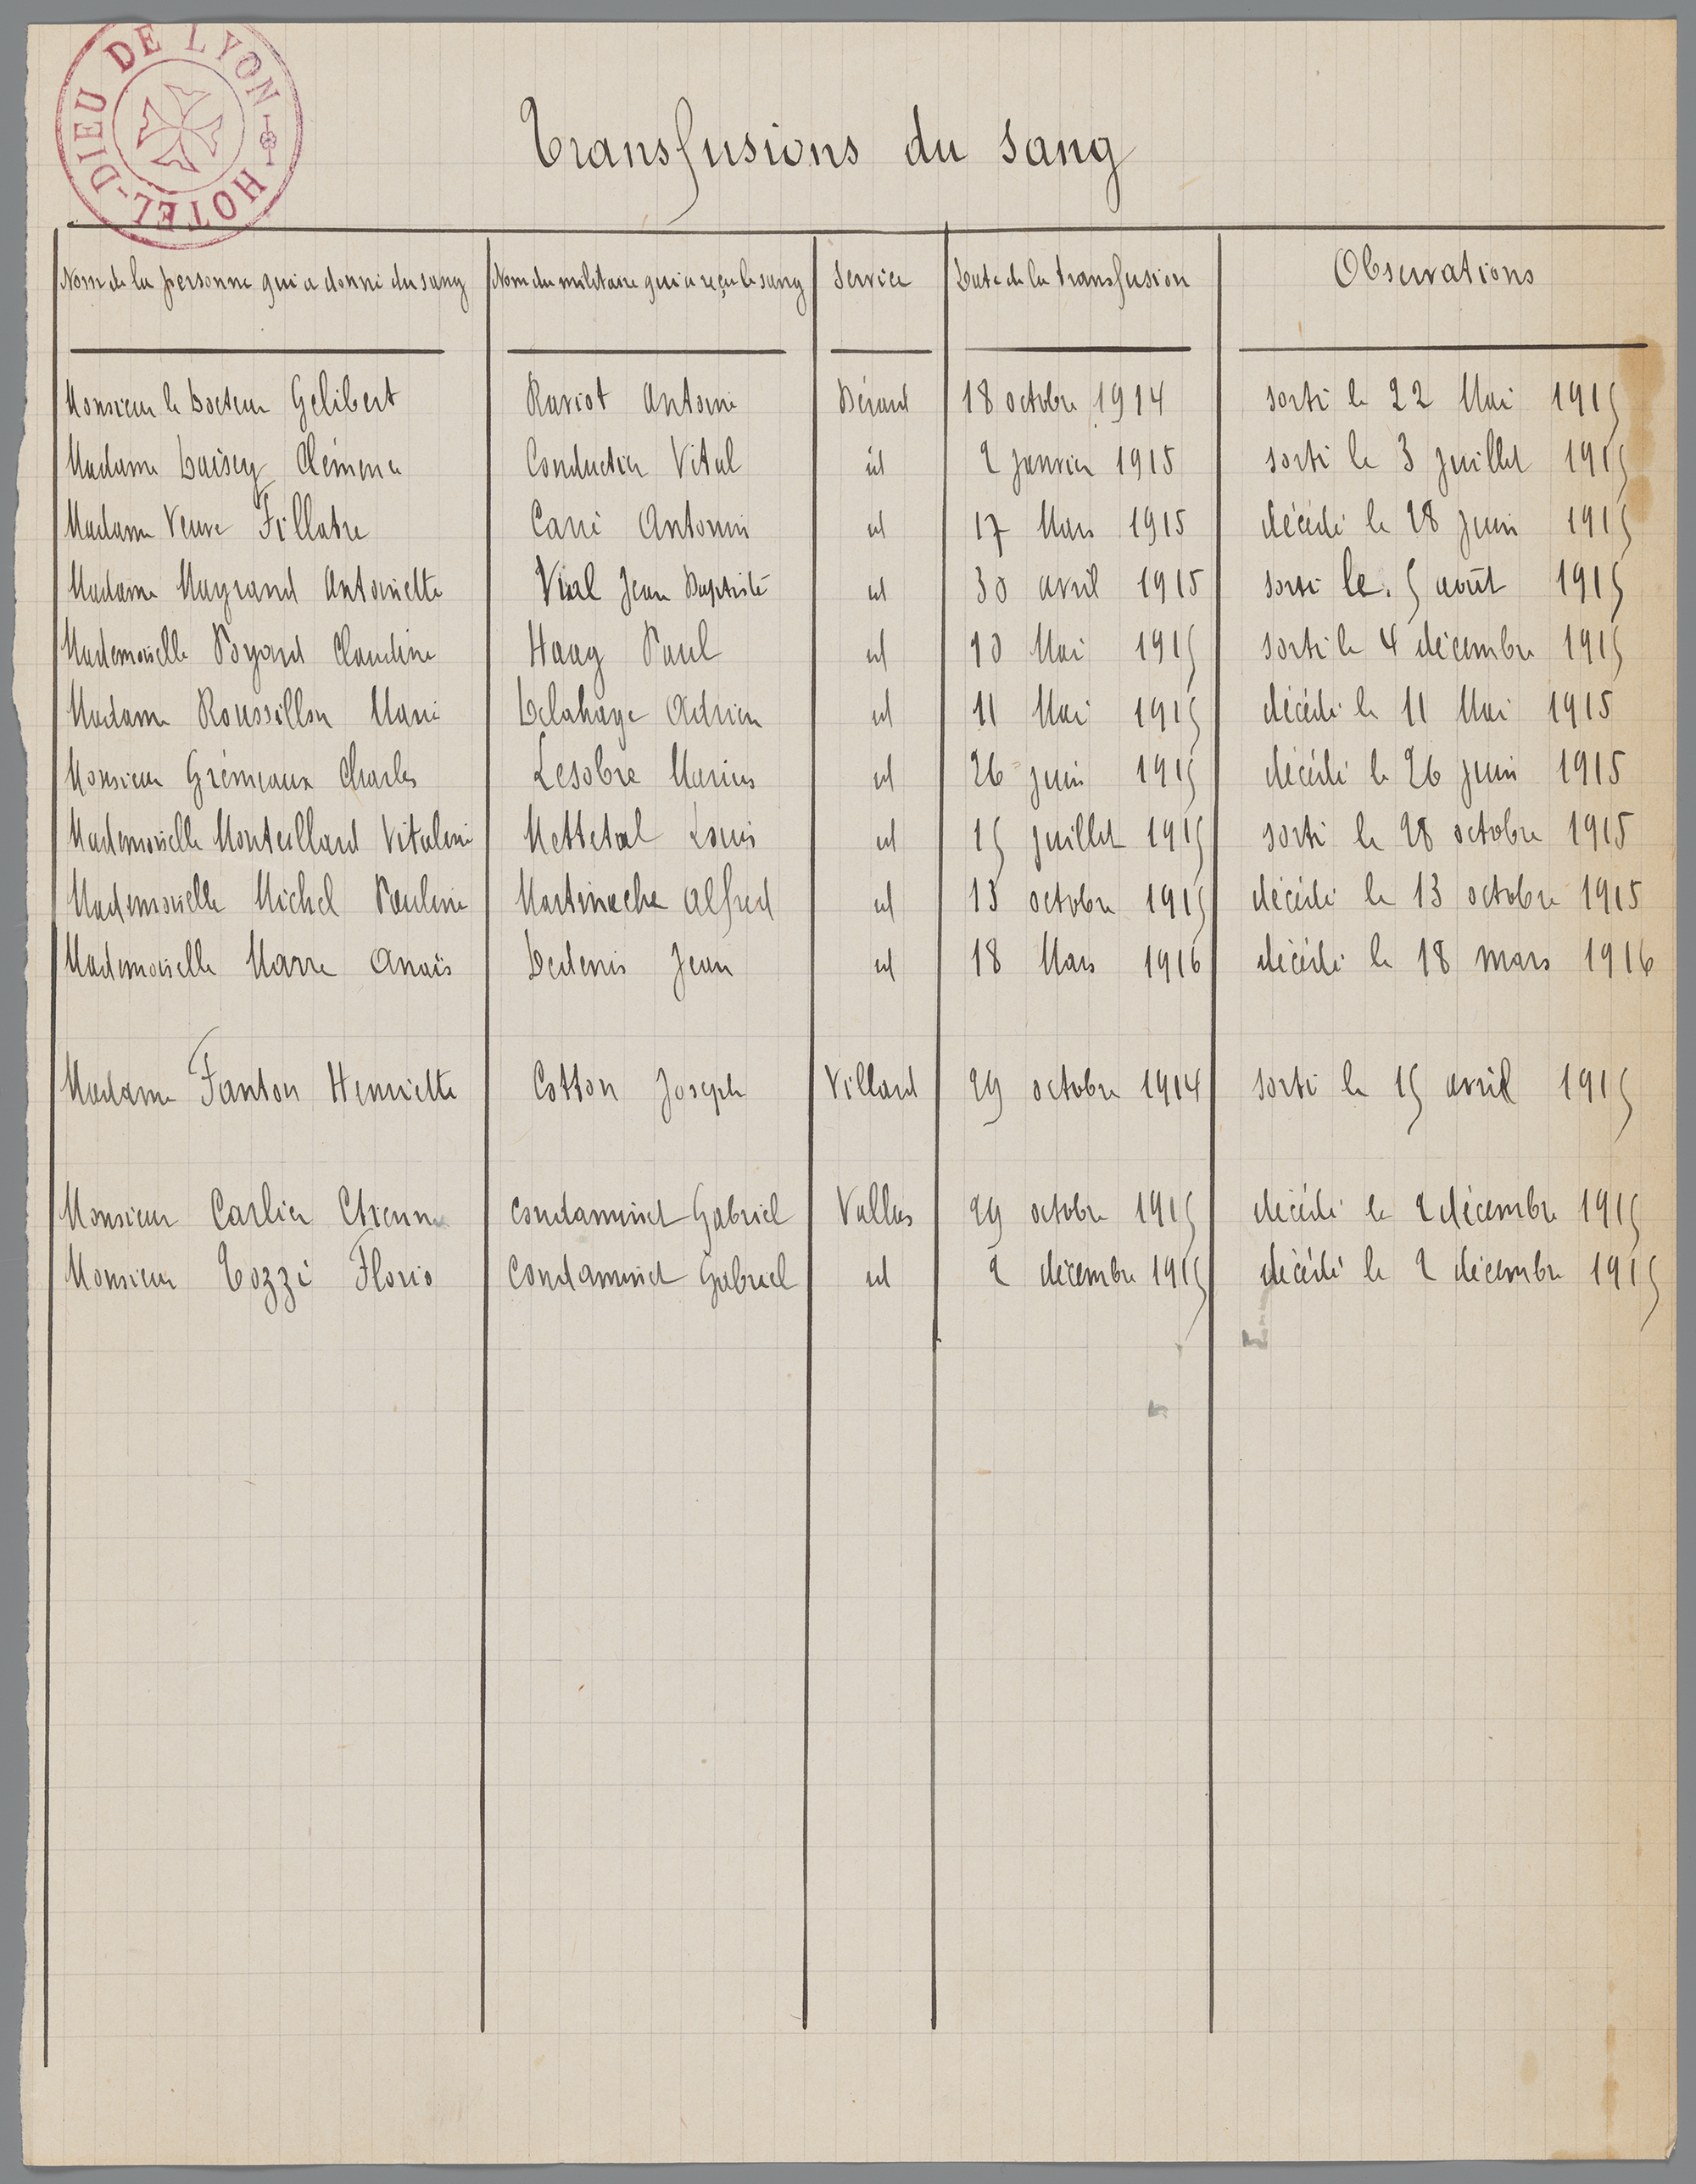 HOTEL-DIEU DE LYON
Transfusions du sang
Nom de la personne qui a donné du sang Nom du militaire qui a reçu le sang Service Date de la transfusion Observations
Monsieur le Docteur Gélibert Raviot Antoine Bérard 18 octobre 1914 sorti le 22 Mai 1915
Madame Loisey Clémence Conducteur Vital id 2 janvier 1915 sorti le 3 juillet 1915
Madame Veuve Fillatre Carré Antonin id 17 Mars 1915 décédé le 28 juin 1915
Madame Mayrand Antoinette Vial Jean Baptiste id 30 avril 1915 sorti le 5 août 1915
Mademoiselle Boyard Claudine Haag Paul id 10 Mai 1915 sorti le 4 décembre 1915
Madame Roussillon Marie Delahaye Adrien id 11 Mai 1915 décédé le 11 Mai 1915
Monsieur Grémeaux Charles Lesobre Marius id 26 juin 1915 décédé le 26 juin 1915
Mademoiselle Monteillard Vitaline Mettetal Louis id 15 juillet 1915 sorti le 28 octobre 1915
Mademoiselle Michel Pauline Martinache Alfred id 13 octobre 1915 décédé le 13 octobre 1915
Mademoiselle Marre Anaïs Dedenis Jean id 18 Mars 1916 décédé le 18 mars 1916
Madame Fanton Henriette Cotton Joseph Villard 29 octobre 1914 sorti le 15 avril 1915
Monsieur Carlier Etienne Condaminet Gabriel Vallas 29 octobre 1915 décédé le 2 décembre 1915
Monsieur Tozzi Florio Condaminet Gabriel id 2 décembre 1915 décédé le 2 décembre 1915